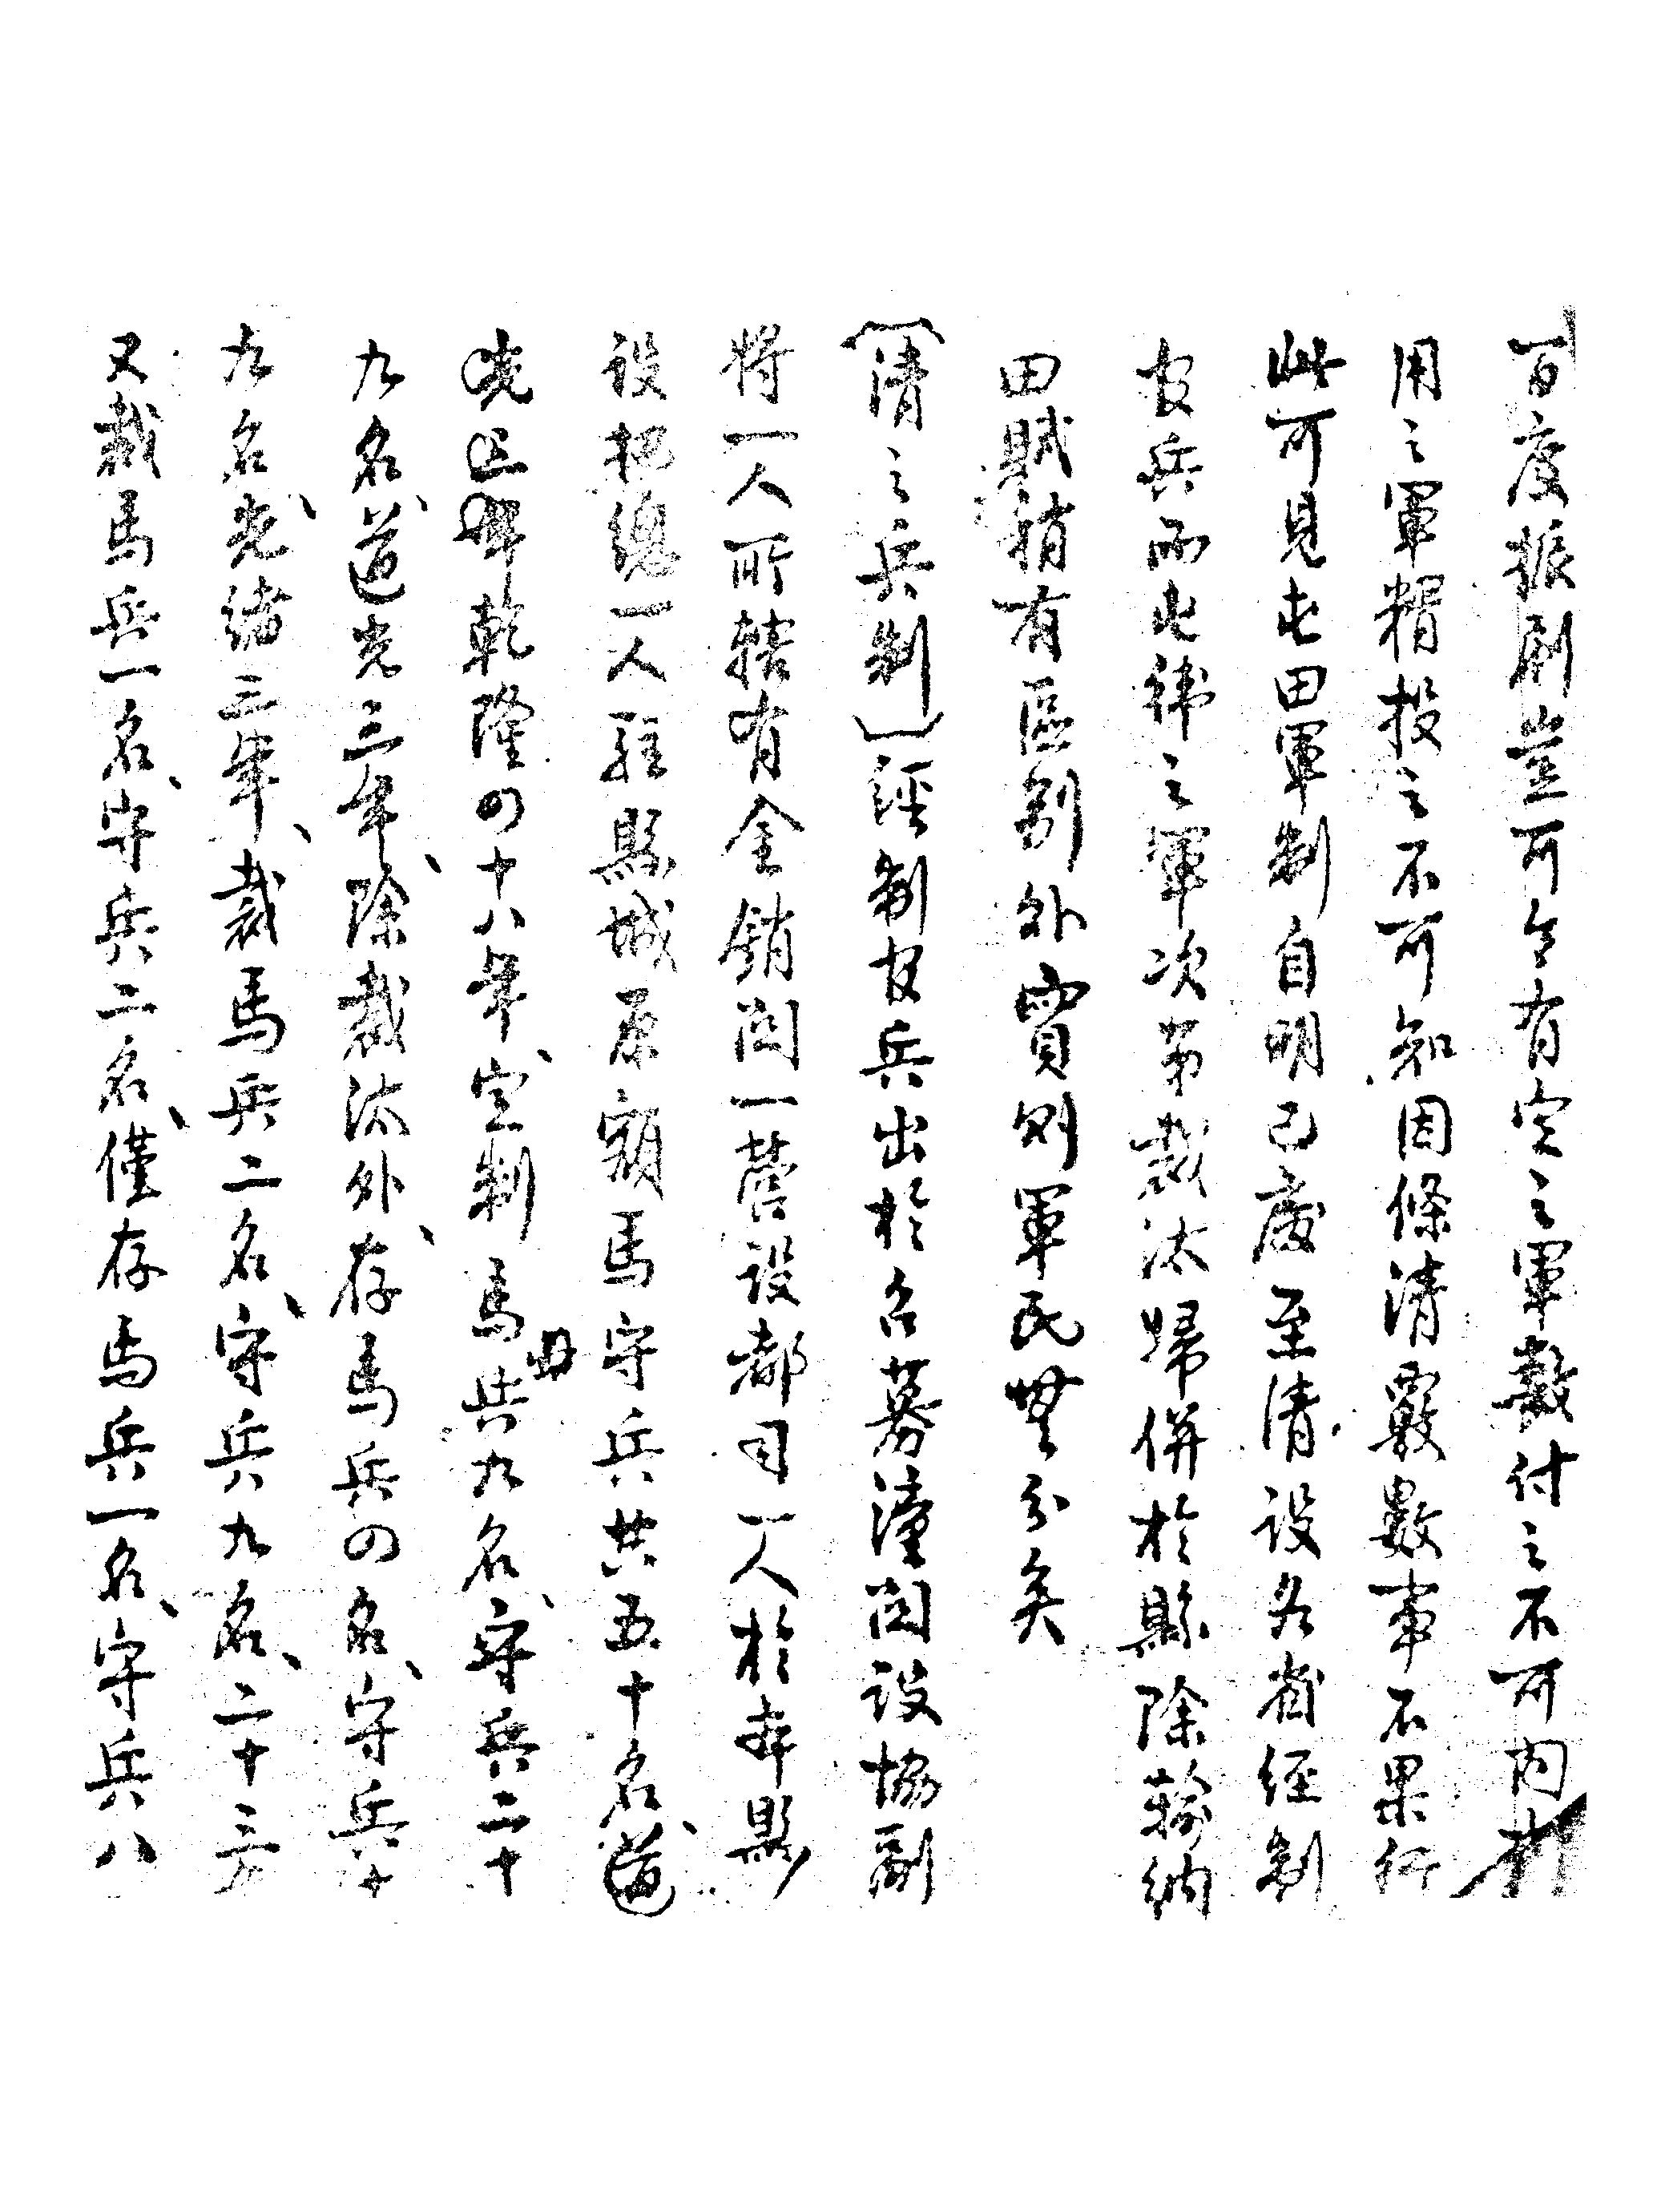 百度振刷豈可令有定之軍數付之不可問有
用之軍糈投之不可知因條清覈數事不果行
此可見屯田軍制自明已廢至清設各省經制
官兵而屯衛之軍次第裁汰歸併於縣除輸納
田賦稍有區別外實則軍民無分矣
〔清之兵制〕經制官兵出於召募潼關設協副
將一人所轄有金鎖關一營設都司一人於本縣
設把總一人駐縣城原額馬守兵共五十名、道
光三年乾隆四十八年、定制馬兵九名、守兵二十
九名、道光三年、除裁汰外、存馬兵四名、守兵十
九名、光緒三年、裁馬兵二名、守兵九名、二十三年
又裁馬兵一名、守兵二名、僅存馬兵一名、守兵八